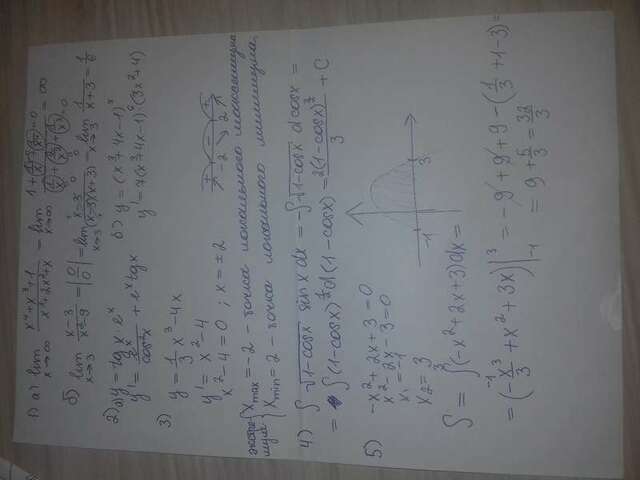 1) а) lim x→∞ (x⁴+x³+1)/(x³+2x²+x) = lim x→∞ (1+1/x+1/x⁴)/(1/x+2/x²+1/x³) = ∞
б) lim x→3 (x-3)/(x²-9) = |0/0| = lim x→3 (x-3)/((x-3)(x+3)) = lim x→3 1/(x+3) = 1/6
2) а) y = tg x · eˣ б) y = (x³+4x-1)⁷
y' = eˣ/cos²x + eˣ tg x y' = 7(x³+4x-1)⁶(3x²+4)
3) y = 1/3 x³-4x
y' = x²-4
x²-4=0 ; x=±2 + -2 - 2 +
экстремум { x max = -2 - точка локального максимума
x min = 2 - точка локального минимума
4) ∫ √(1-cosx) sin x dx = -∫ √(1-cosx) dcosx =
= ∫ (1-cosx)^(1/2) d(1-cosx) = 2(1-cosx)^(3/2)/3 + C
5) -x²+2x+3=0
x²-2x-3=0
x₁ = -1
x₂ = 3 -1 3
S = ∫₋₁³ (-x²+2x+3)dx =
= (-x³/3 + x² + 3x)|₋₁³ = -9+9+9-(1/3+1-3) =
= 9 + 5/3 = 32/3